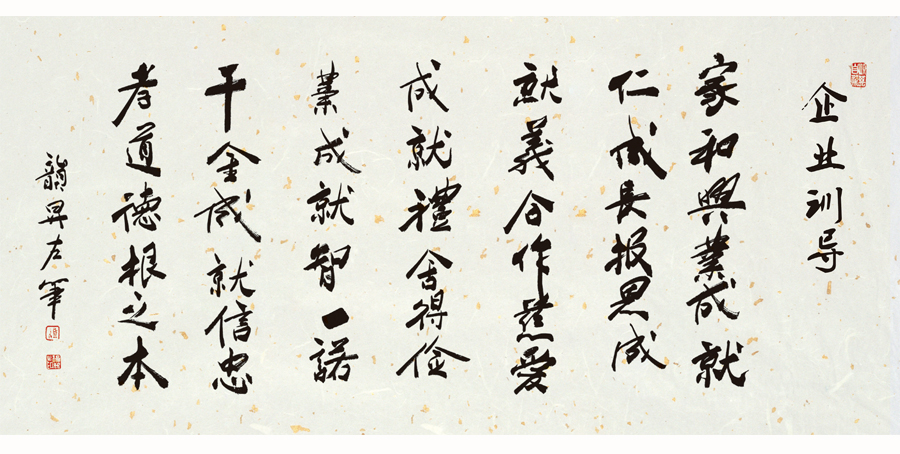 企业训导
家和興業成就
仁成長报恩成
就義合作慈愛
成就禮舍得俭
業成就智一諾
千金成就信忠
孝道德根之本
昇左筆